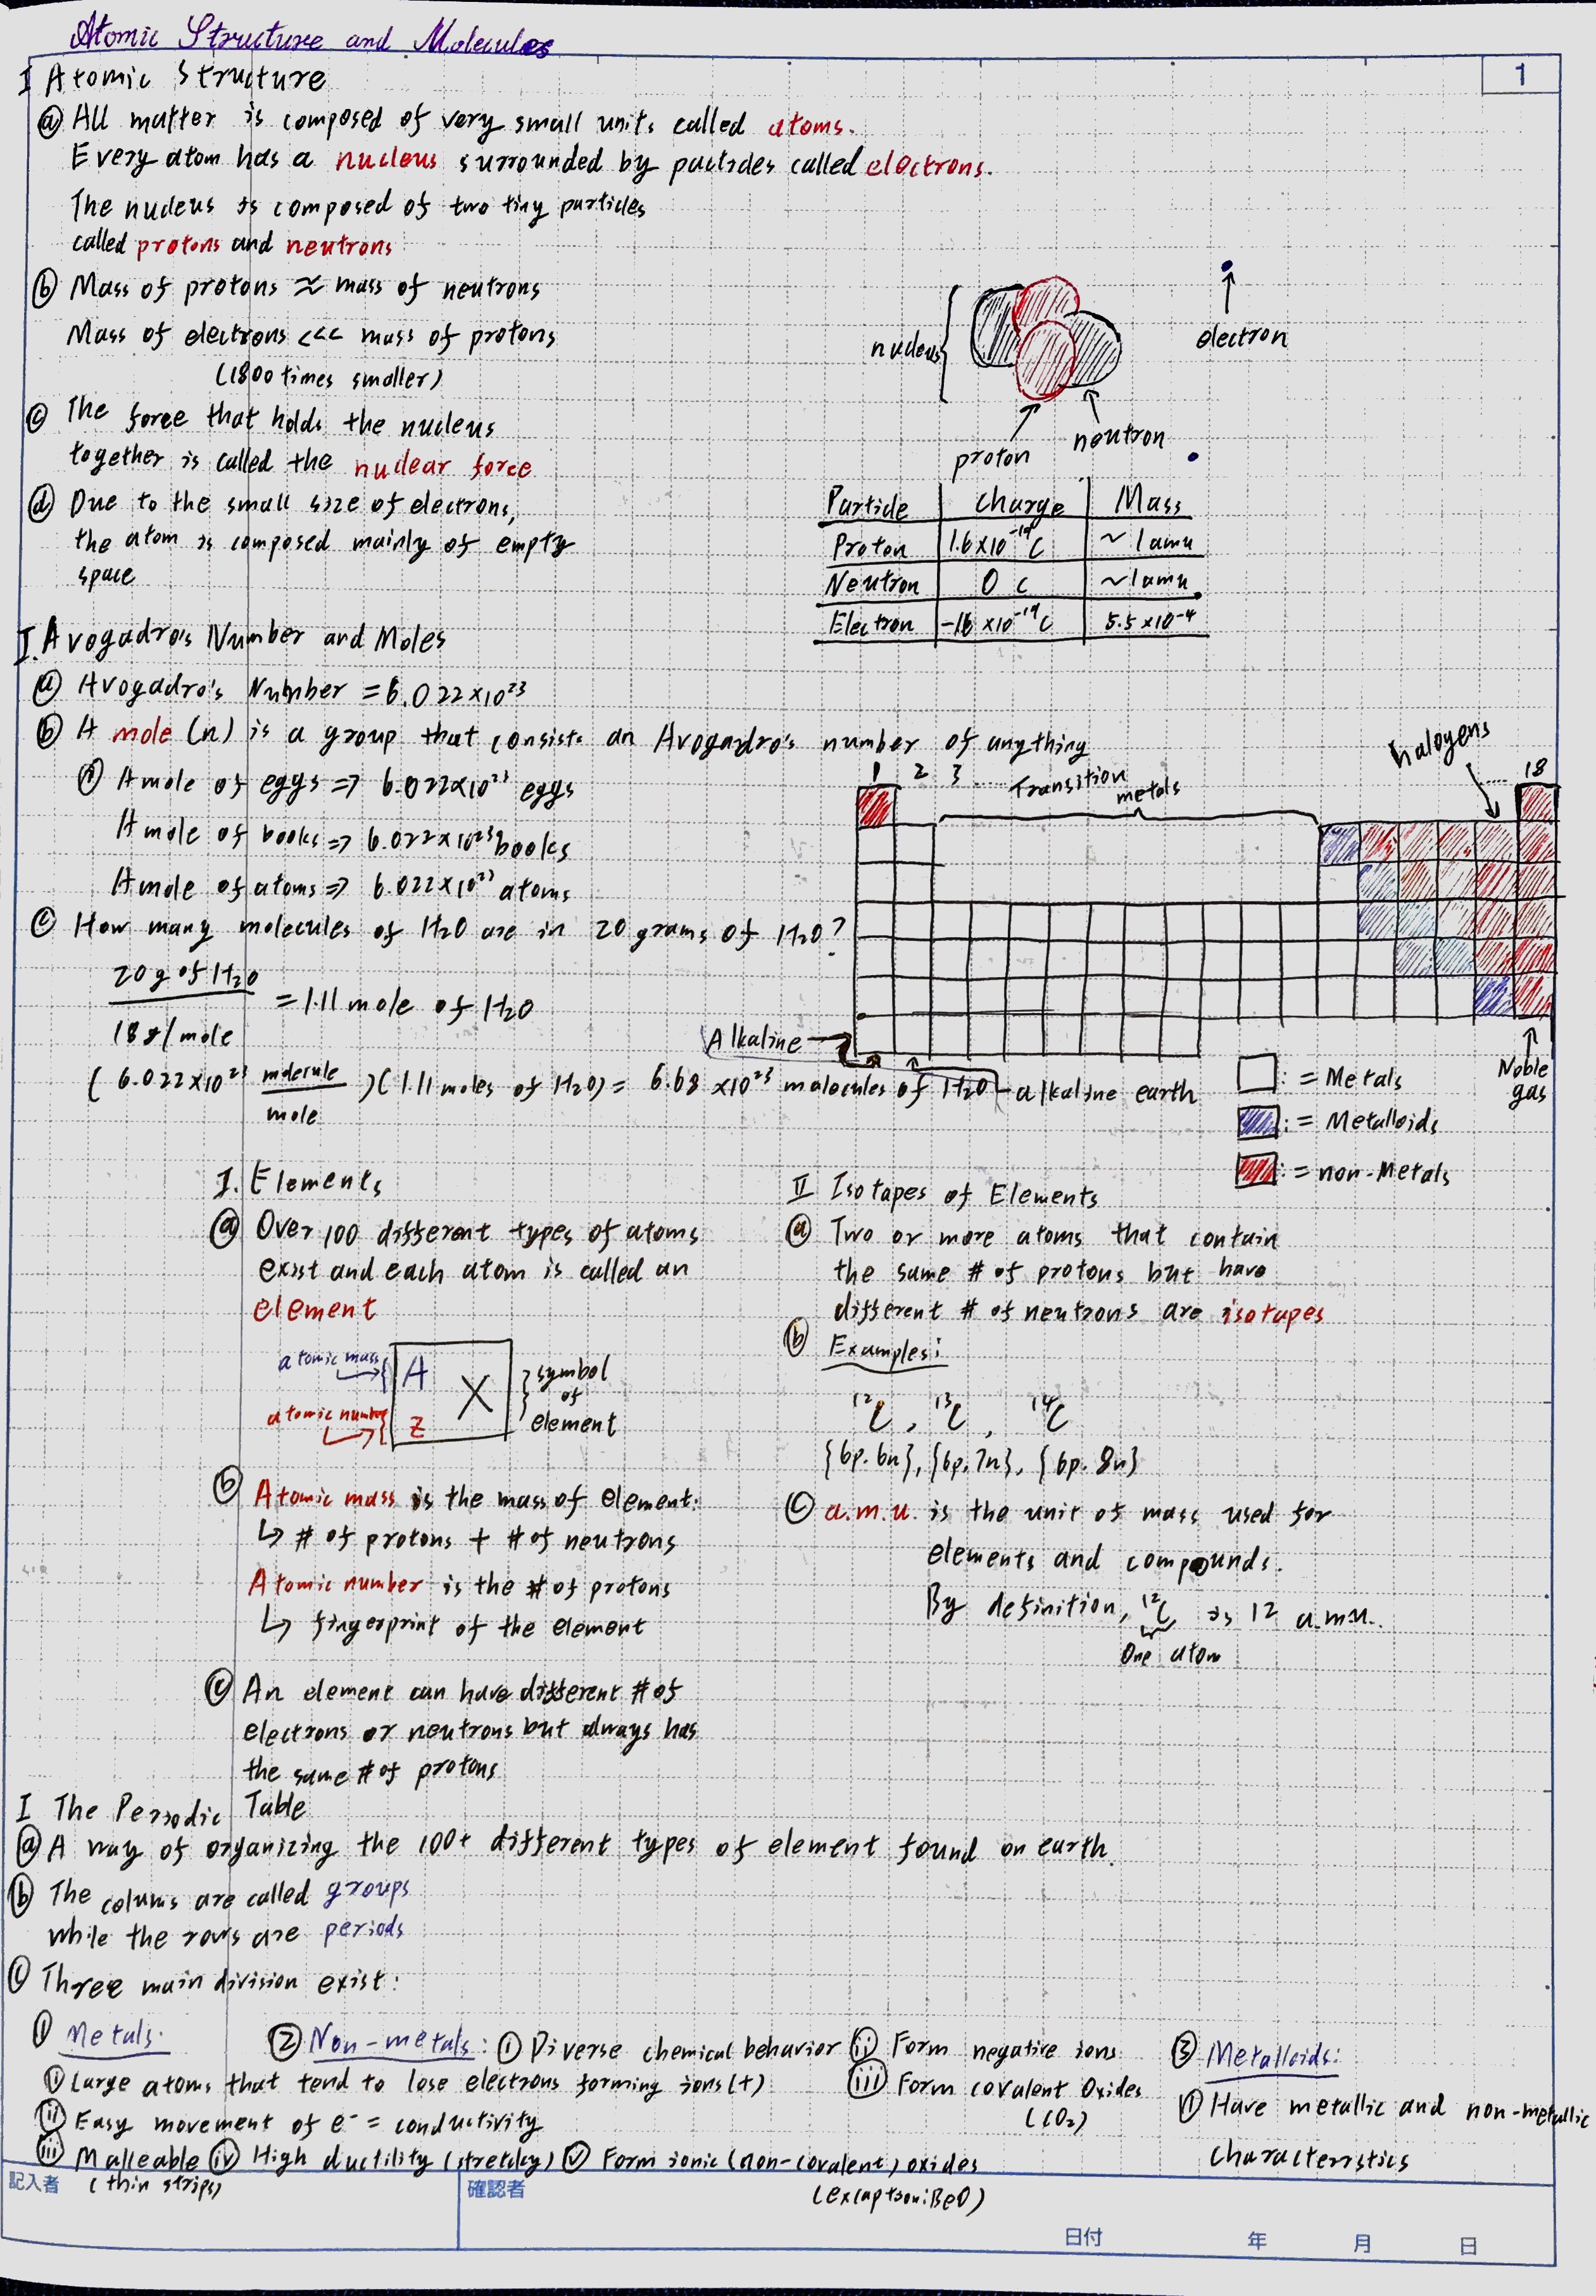 Atomic Structure and Molecules
1
I Atomic Structure
ⓐ All matter is composed of very small units called atoms.
Every atom has a nucleus surrounded by particles called electrons.
The nucleus is composed of two tiny particles
called protons and neutrons
ⓑ Mass of protons ≈ mass of neutrons
Mass of electrons <<< mass of protons
(1800 times smaller)
ⓒ The force that holds the nucleus
together is called the nuclear force
ⓓ Due to the small size of electrons,
the atom is composed mainly of empty
space
nucleus
electron
proton
neutron
Particle Charge Mass
Proton 1.6×10⁻¹⁹C ~1amu
Neutron 0 C ~1amu
Electron -1.6×10⁻¹⁹C 5.5×10⁻⁴
I. Avogadro's Number and Moles
ⓐ Avogadro's Number = 6.022×10²³
ⓑ A mole (n) is a group that consists an Avogadro's number of anything
ⓘ A mole of eggs => 6.022×10²³ eggs
A mole of books => 6.022×10²³ books
A mole of atoms => 6.022×10²³ atoms
ⓒ How many molecules of H₂O are in 20 grams of H₂O?
20g of H₂O
= 1.11 mole of H₂O
18g/mole
(6.022×10²³ molecule/mole)(1.11 moles of H₂O) = 6.68×10²³ molecules of H₂O
1 2 3... Transition metals halogens ..... 18
Alkaline
alkaline earth
Noble gas
: = Metals
: = Metalloids
: = non-Metals
I. Elements
ⓐ Over 100 different types of atoms
exist and each atom is called an
element
atomic mass A
X symbol of element
atomic number Z
ⓑ Atomic mass is the mass of element.
↳ # of protons + # of neutrons
Atomic number is the # of protons
↳ fingerprint of the element
ⓒ An element can have different # of
electrons or neutrons but always has
the same # of protons
II Isotapes of Elements
ⓐ Two or more atoms that contain
the same # of protons but have
different # of neutrons are isotapes
ⓑ Examples:
¹²C, ¹³C, ¹⁴C
{6p. 6n}, {6p. 7n}, {6p. 8n}
ⓒ a.m.u. is the unit of mass used for
elements and compounds.
By definition, ¹²C is 12 a.m.u.
One atom
I The Periodic Table
ⓐ A way of organizing the 100+ different types of element found on earth.
ⓑ The colums are called groups
while the rows are periods
ⓒ Three main division exist:
① Metals:
ⓘ Large atoms that tend to lose electrons forming ions(+)
ⓘⓘ Easy movement of e⁻ = conductivity
ⓘⓘⓘ Malleable (iv) High ductility (stretchy) ⓥ Form ionic (non-covalent) oxides
(thin strips)
(exception: BeO)
② Non-metals: ⓘ Diverse chemical behavior (ii) Form negative ions
(iii) Form covalent Oxides
(CO₂)
③ Metalloids:
ⓘ Have metallic and non-metallic
characteristics
記入者
確認者
日付 年 月 日